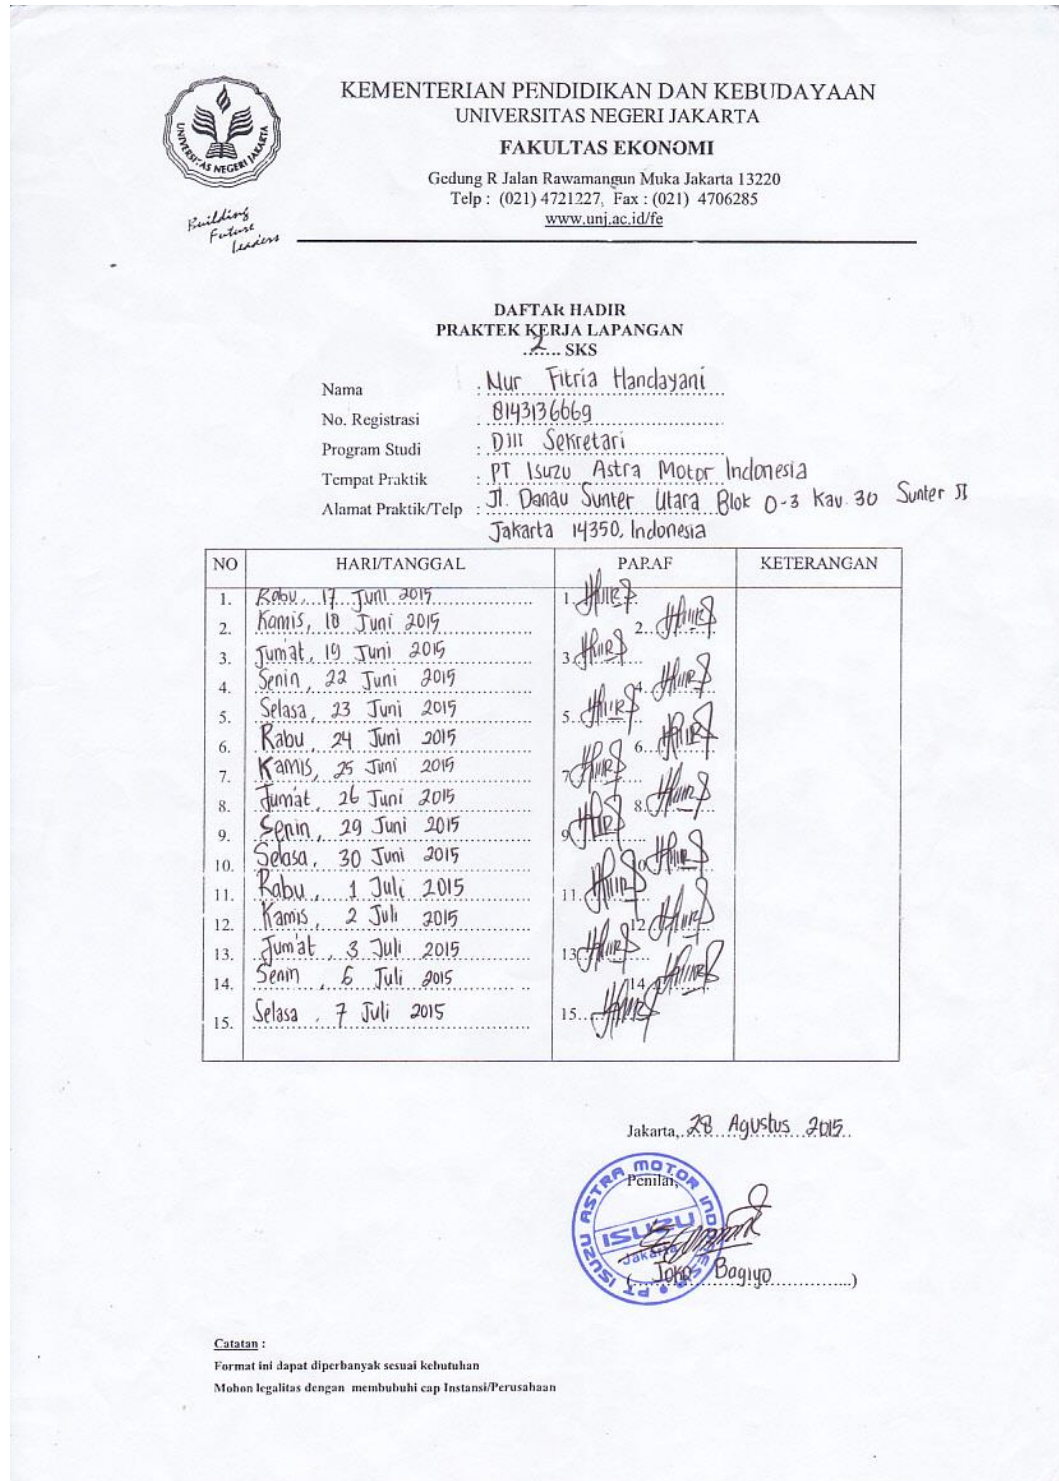 KEMENTERIAN PENDIDIKAN DAN KEBUDAYAAN
UNIVERSITAS NEGERI JAKARTA
FAKULTAS EKONOMI
Gedung R Jalan Rawamangun Muka Jakarta 13220
Telp : (021) 4721227, Fax : (021) 4706285
www.unj.ac.id/fe
UNIVERSITAS NEGERI JAKARTA
Building
Future
Leaders
DAFTAR HADIR
PRAKTEK KERJA LAPANGAN
2 SKS
Nama : Nur Fitria Handayani
No. Registrasi : 8143136669
Program Studi : DIII Sekretari
Tempat Praktik : PT Isuzu Astra Motor Indonesia
Alamat Praktik/Telp : Jl. Danau Sunter Utara Blok O-3 Kav. 30 Sunter II
Jakarta 14350, Indonesia
NO HARI/TANGGAL PARAF KETERANGAN
1. Rabu, 17 Juni 2015 1.
2. Kamis, 18 Juni 2015 2.
3. Jum'at, 19 Juni 2015 3.
4. Senin, 22 Juni 2015 4.
5. Selasa, 23 Juni 2015 5.
6. Rabu, 24 Juni 2015 6.
7. Kamis, 25 Juni 2015 7.
8. Jum'at, 26 Juni 2015 8.
9. Senin, 29 Juni 2015 9.
10. Selasa, 30 Juni 2015
11. Rabu, 1 Juli 2015 11.
12. Kamis, 2 Juli 2015 12
13. Jum'at, 3 Juli 2015 13
14. Senin, 6 Juli 2015 14.
15. Selasa, 7 Juli 2015 15.
Jakarta, 28 Agustus 2015
Penilai,
PT ISUZU ASTRA MOTOR INDONESIA
ISUZU
Jakarta
( Joko Bagiyo )
Catatan :
Format ini dapat diperbanyak sesuai kebutuhan
Mohon legalitas dengan membubuhi cap Instansi/Perusahaan